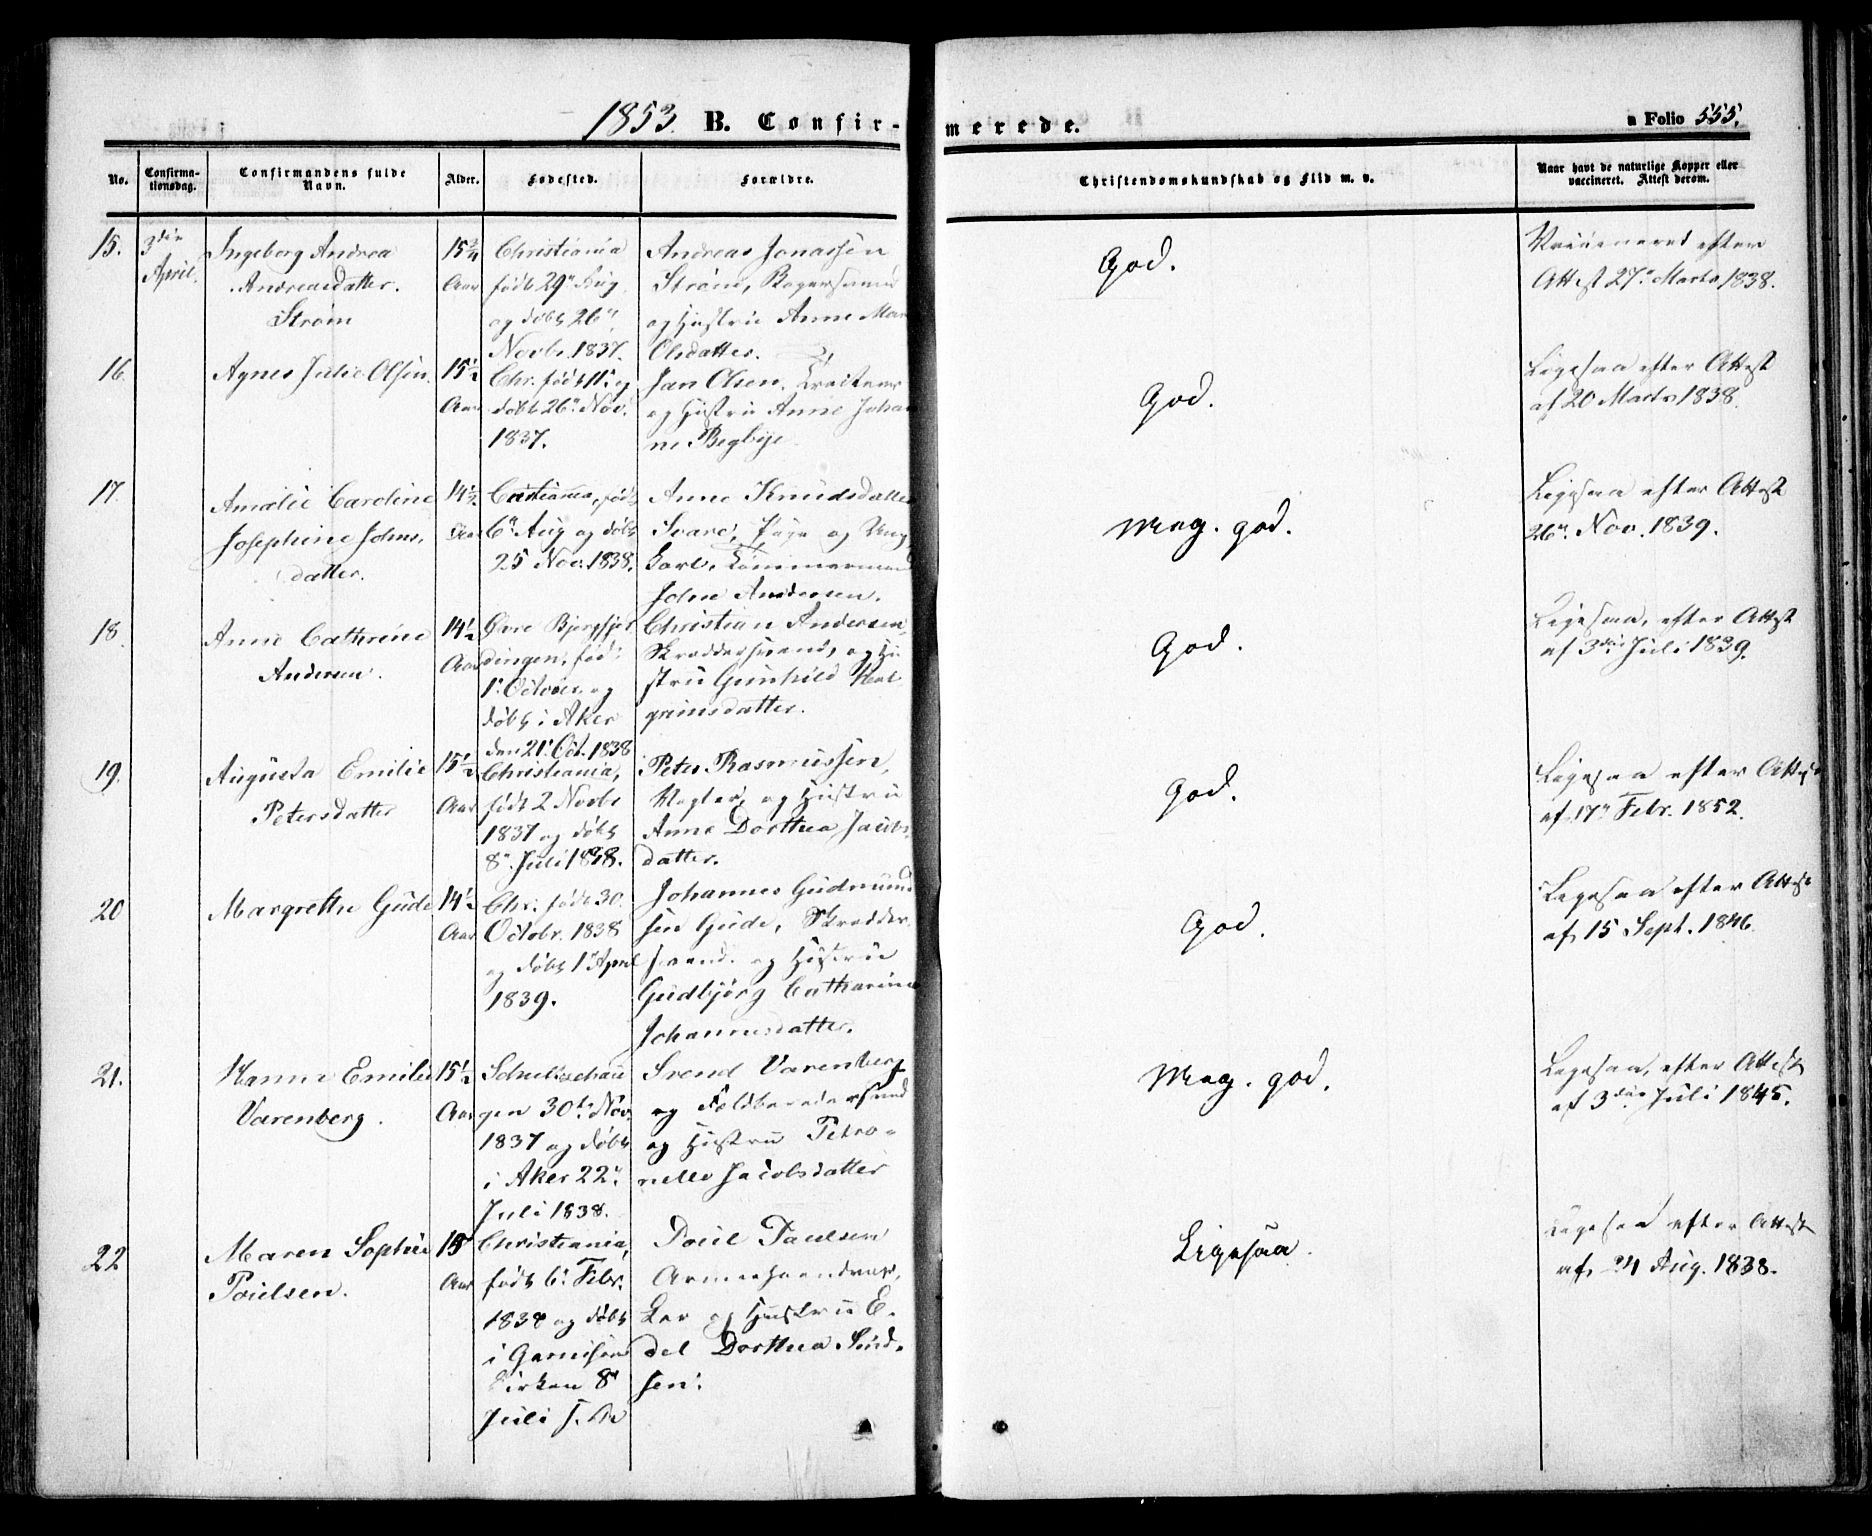 1853. B. Confirmerede.
a Folio 555.
No. Confirmationsdag. Confirmandens fulde Navn. Alder. Fødested. Forældre. Christendomskundskab og Flid m. v. Naar havt de naturlige Kopper eller vaccineret. Attest derom.
15.
3die
April.
Ingeborg Andrea
Andreasdatter.
Strøm
15 3/4
Aar
Christiania
født 29n Aug
og døbt 26n
Novbr. 1837.
Andreas Jonassen
Strøm,
og Hustru Anne Mar
Olsdatter.
God.
Vaccineret efter
Attest 27n Marts 1838.
16.
Agnes Julie Olsen.
15 1/2
Aar
Chr. født 11n og
døbt 26n Nov.
1837.
Jan Olsen,
og Hustru Anne Johan
ne Begbye.
God.
Ligesaa efter Attest
af 20 Marts 1838.
17.
Amalie Caroline
Josephine Johns,
datter.
14 1/2
Aar
født
6n Aug og døbt
25 Nov. 1838.
Anne Knudsdatter
Svare, Pige og Ung
karl, Tømmermand
John Andersen.
Meg. god.
Ligesaa efter Attest
26n Nov. 1839.
18.
Anne Cathrine
Andersen.
14 1/2
Aar
Øvre
dingen, født
1n October og
døbt i Aker
den 21n Oct. 1838
Christian Andersen,
Skræddersvend, og Hu
stru Gunhild Hal
grimsdatter.
God.
Ligesaa, efter Attest
af 3die Juli 1839.
19.
Augusta Emilie
Petersdatter
15 1/2
Aar
Christiania,
født 2 Novbr
1837 og døbt
8n Juli 1838.
Peter Rasmussen,
Vægter, og Hustru
Anne Dorthea Jacobs
datter.
God.
Ligesaa efter Attest
af 17n Febr. 1852.
20
Margrethe Gude
14 1/2
Aar
Chr. født 30.
Octobr. 1838
og døbt 1n April
1839.
Johannes Gudmund
sen Gude, Skrædder
svend. og Hustrue
Gudbjørg Catharine
Johannesdatter.
God.
Ligesaa efter Attest
af 15 Sept. 1846.
21.
Hanne Emilie
Varenberg.
15 1/2
Aar
gen 30te Nov.
1837 og døbt
i Aker 22n
Juli 1838.
Svend Varenberg
og Feldberedersvend
og Hustru Petro-
nelle Jacobsdatter
Meg. god.
Ligesaa, efter Attest
af 3die Juli 1845.
22
Maren Sophie
Poulsen.
15
Aar
Christiania,
født 6n Febr.
1838 og døbt
i Garnisons
Kirken 8n
Juli s. A.
Poul Paulsen
og Hustru E-
del Dorthea Knud-
sen.
Ligesaa.
Ligesaa efter Attest
af 21 Aug. 1838.